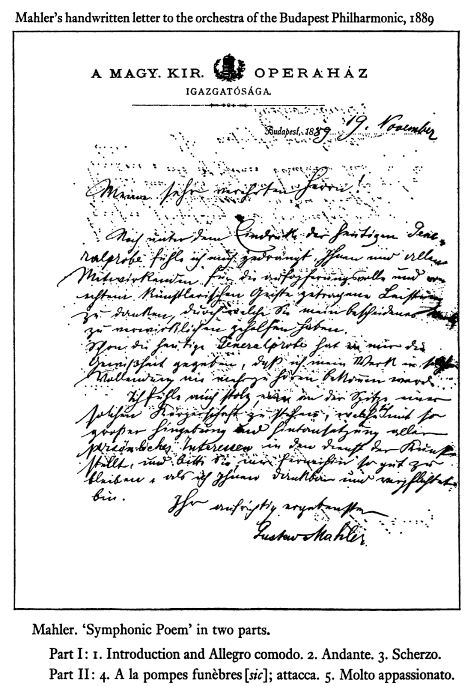 Mahler's handwritten letter to the orchestra of the Budapest Philharmonic, 1889
A MAGY. KIR. OPERAHÁZ
IGAZGATÓSÁGA.
Budapest, 1889 19. November
Meine sehr verehrten Herren!
Noch unter dem Eindruck der heutigen Gene-
ralprobe fühle ich mich gedrängt Ihnen und allen
Mitwirkenden für die aufopferungsvolle und von
echtem künstlerischen Geiste getragene Leistung
zu danken, durch welche Sie mein bescheidenes
zu verwirklichen geholfen haben.
Schon die heutige Generalprobe hat mir die
Gewißheit gegeben, daß ich mein Werk in
Vollendung nie mehr zu hören bekommen werde
Ich fühle mich stolz an der Spitze einer
solchen Körperschaft zu stehen, mit so
großer Hingebung und Hintansetzung aller
Interessen in den Dienst der Kunst
stellt, und bitte Sie mir fernerhin so gut zu
bleiben, als ich Ihnen dankbar und verpflichtet
bin.
Ihr aufrichtig ergebenster
Gustav Mahler
Mahler. 'Symphonic Poem' in two parts.
Part I: 1. Introduction and Allegro comodo. 2. Andante. 3. Scherzo.
Part II: 4. A la pompes funèbres [sic]; attacca. 5. Molto appassionato.